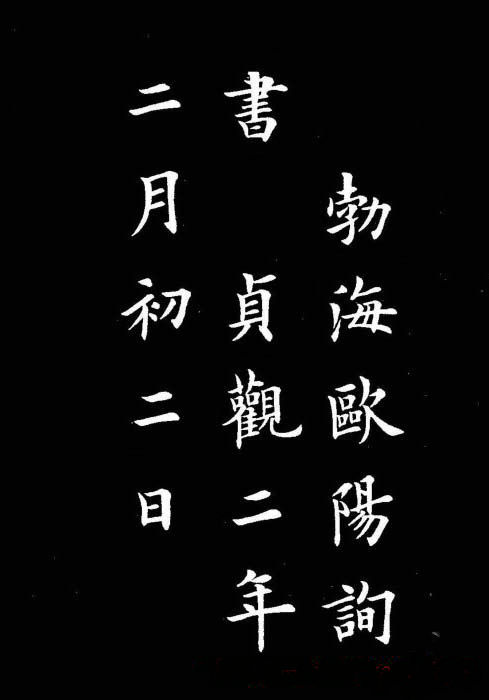 勃海歐陽詢
書 貞觀二年
二月初二日